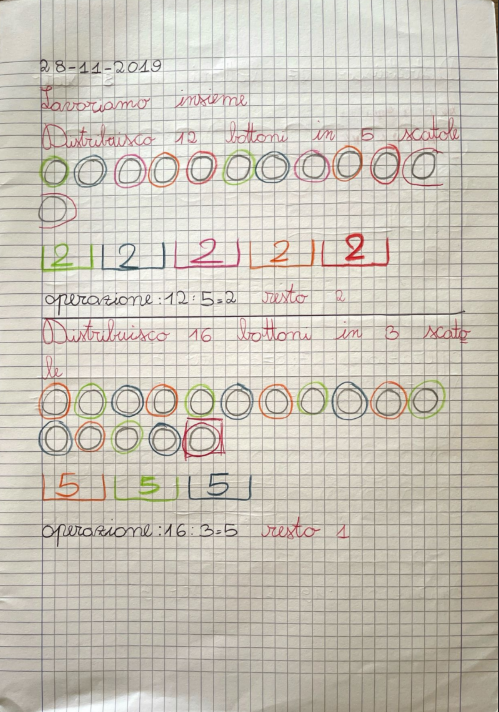 28-11-2019
Lavoriamo insieme
Distribuisco 12 bottoni in 5 scatole
2 2 2 2 2
operazione:12:5=2 resto 2
Distribuisco 16 bottoni in 3 scato
le
5 5 5
operazione:16:3=5 resto 1